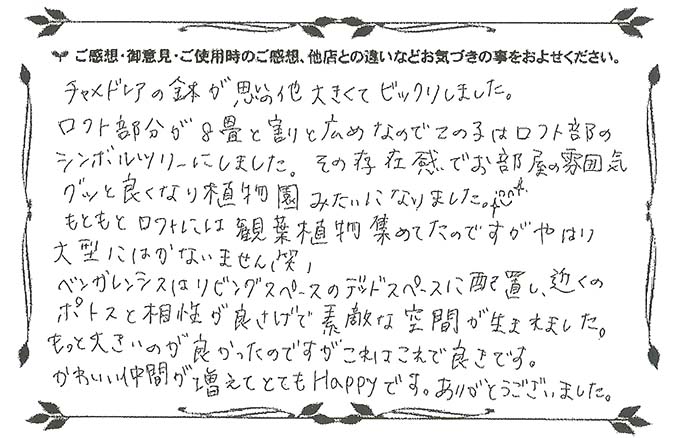 ご感想・御意見・ご使用時のご感想、他店との違いなどお気づきの事をおよせください。
チャメドレアの鉢が思いの他大きくてビックリしました。
ロフト部分が8畳と割りと広めなのでこの子はロフト部の
シンボルツリーにしました。その存在感でお部屋の雰囲気
グッと良くなり植物園みたいになりました。
もともとロフトには観葉植物集めてたのですがやはり
大型にはかないません(笑)
ベンガレンシスはリビングスペースのデッドスペースに配置し、近くの
ポトスと相性が良さげで素敵な空間が生まれました。
もっと大きいのが良かったのですがこれはこれで良きです。
かわいい仲間が増えてとてもHappyです。ありがとうございました。